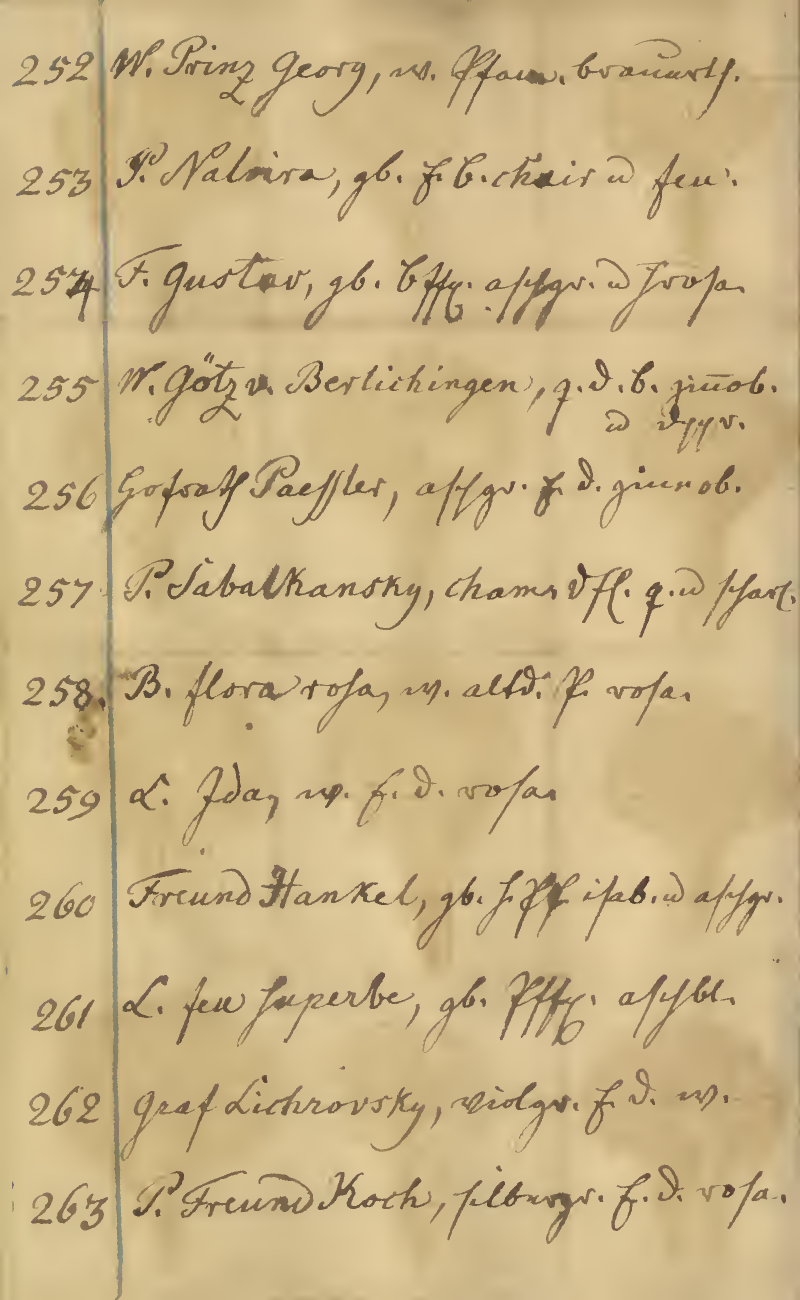 252 W. Prinz Georg, w. Pfam. braunrth.
253 P. Nalvira, gb. f. b. chair u feu.
254 F. Gustav, gb. aschgr. u hrosa.
255 W. Götz v. Berlichingen, q. d. b. zinnob.
u
256 Hofrath Paessler, aschgr. f. d. zinnob.
257 P. Sabalkansky, cham. dfl. q. u scharl.
258. B. flora rosa, w. altd. P. rosa.
259 L. Ida, w. f. d. rosa.
260 Freund Hankel, gb. isab. u aschgr.
261 L. feu superbe, gb. aschbl.
262 Graf Lichnovsky, violgr. f. d. w.
263 P. Freund Koch, silbergr. f. d. rosa.